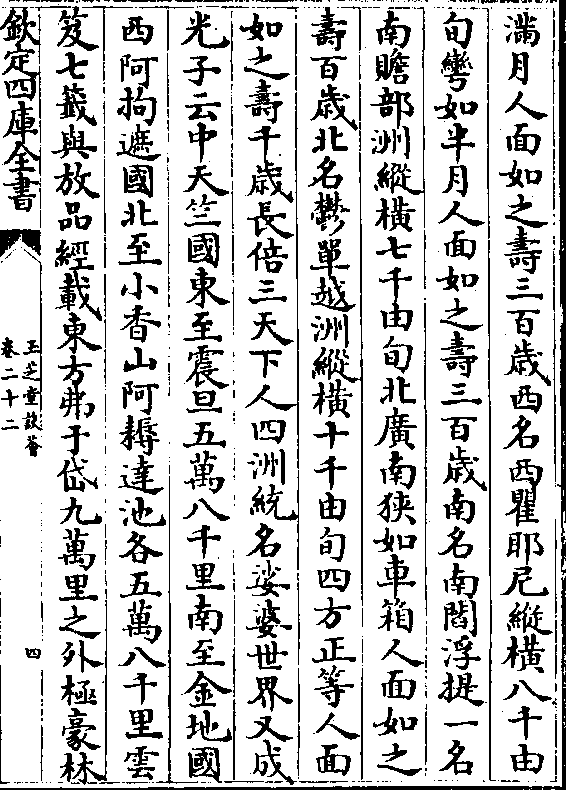 滿月人面如之壽三百歲西名西瞿耶尼縱橫八千由
旬彎如半月人面如之壽三百歲南名南閻浮提一名
南贍部洲縱橫七千由旬北廣南狹如車箱人面如之
壽百歲北名鬱單越洲縱橫十千由旬四方正等人面
如之壽千歲長倍三天下人四洲統名娑婆世界又成
光子云中天竺國東至震旦五萬八千里南至金地國
西阿拘遮國北至小香山阿耨達池各五萬八千里雲
笈七籤與放品經載東方弗于岱九萬里之外極豪林
欽定四庫全書
玉芝堂談薈
卷二十二
四